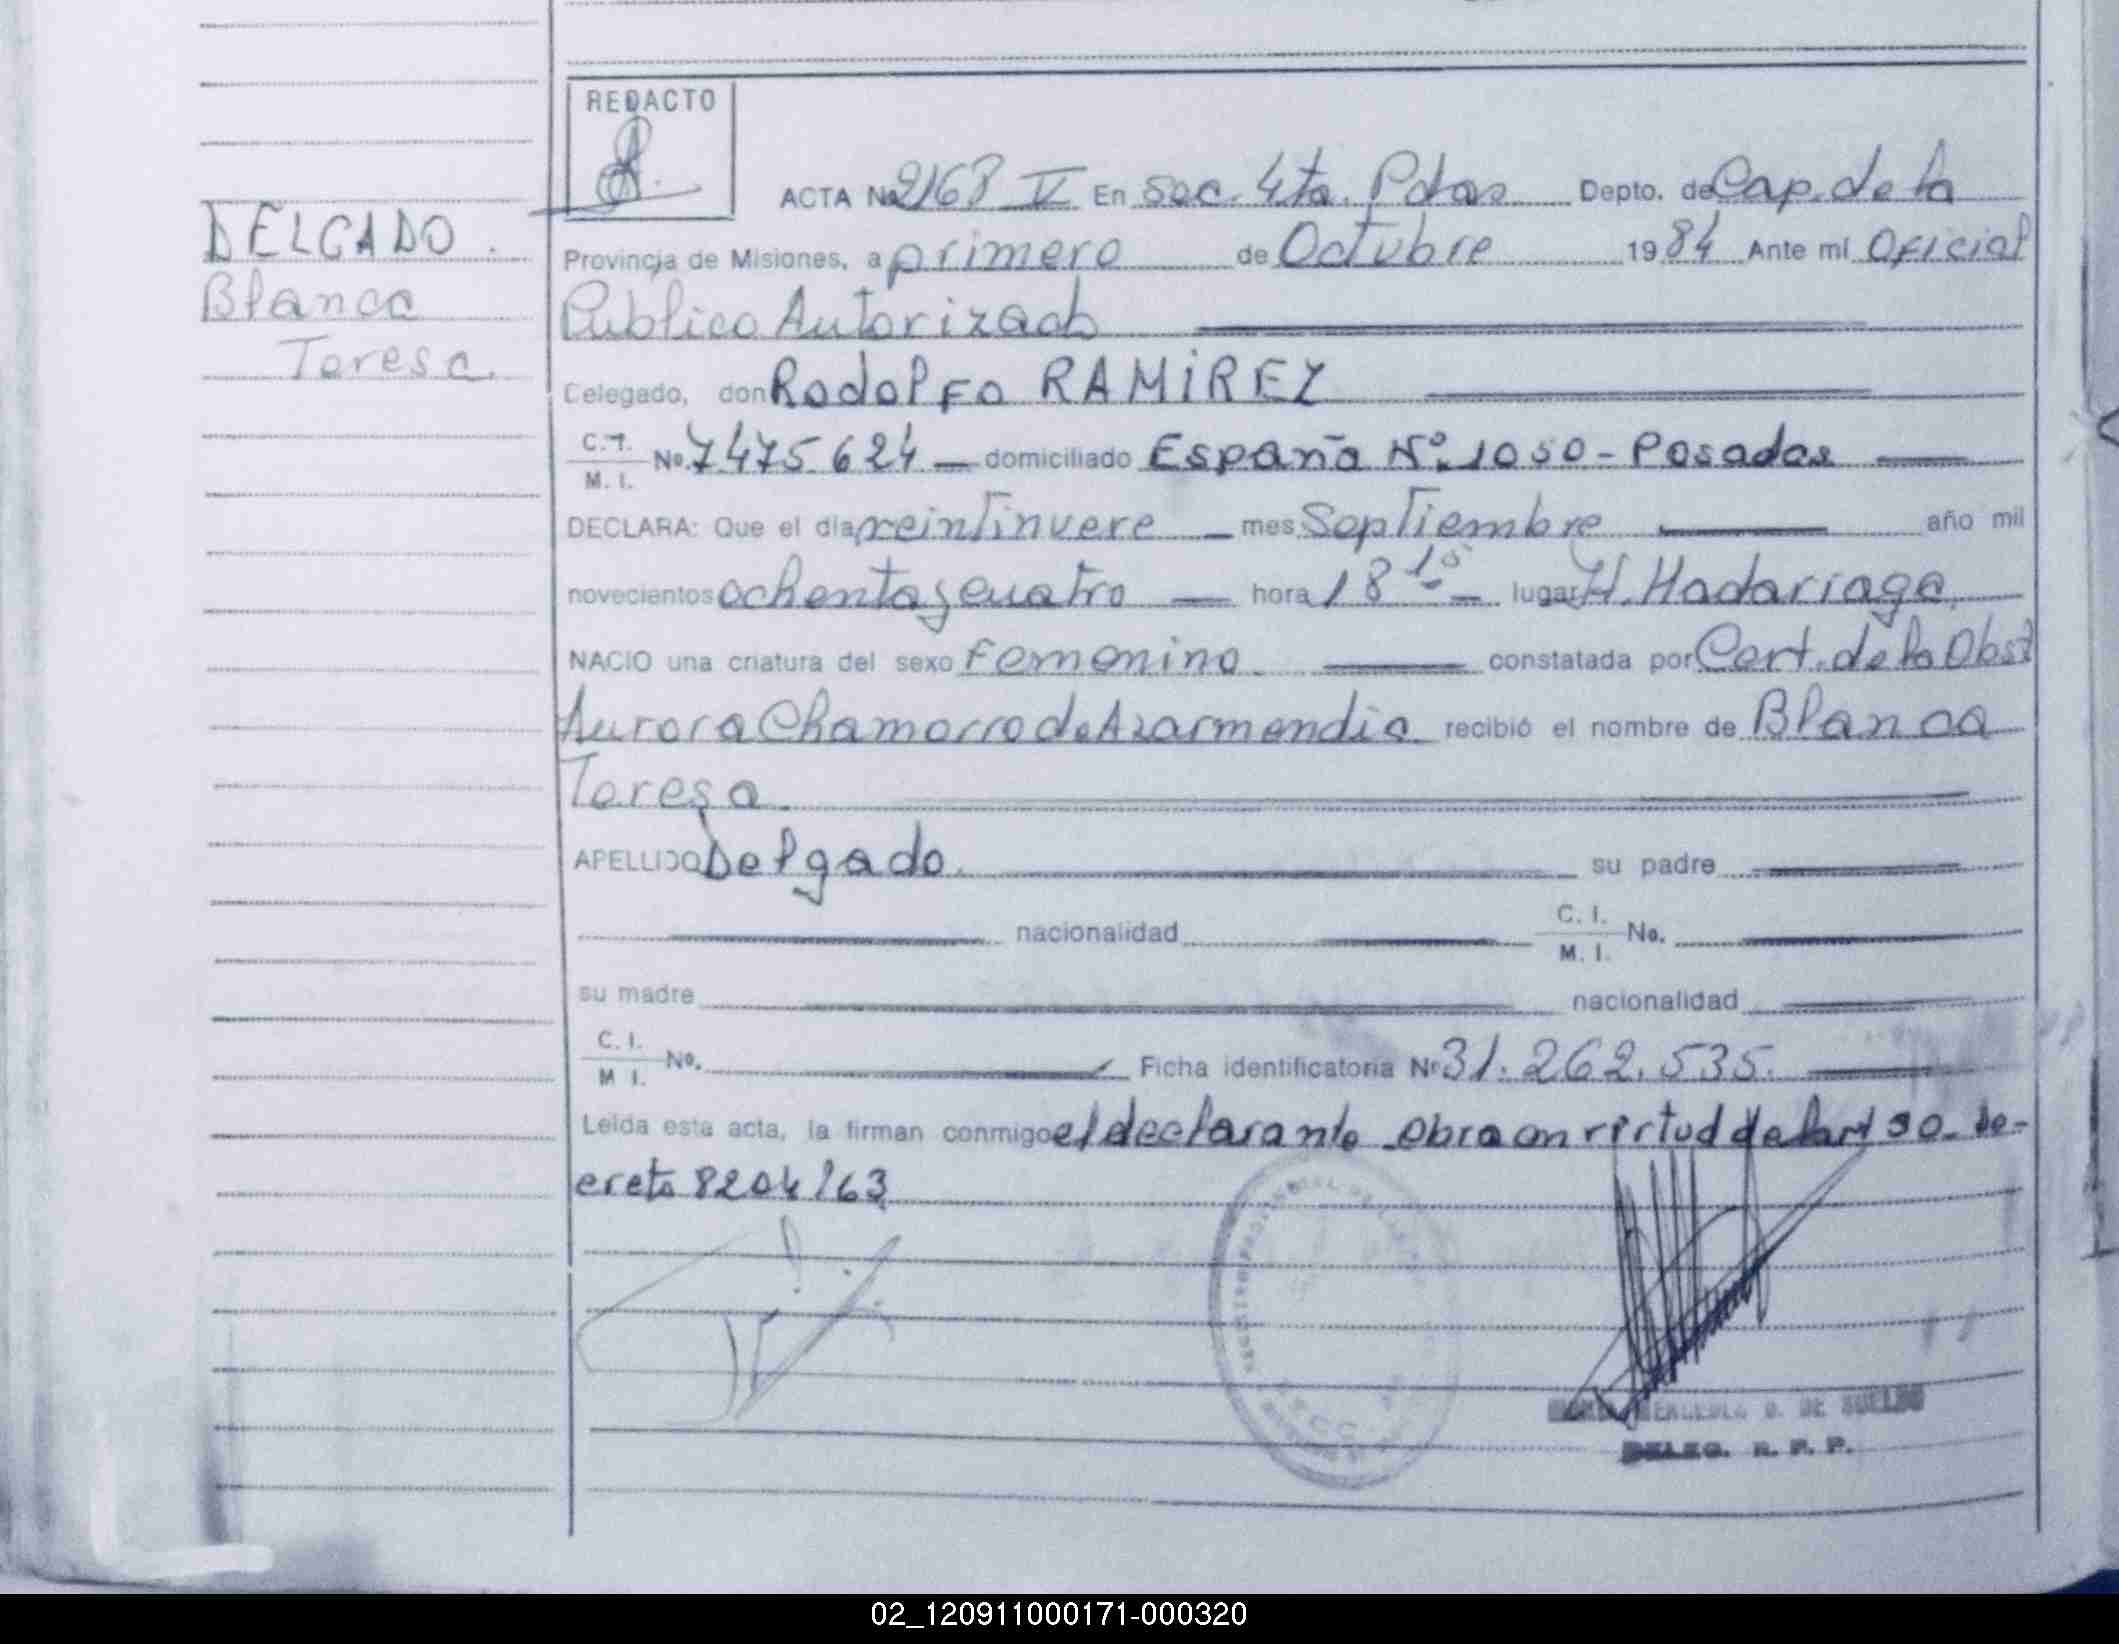 REDACTO
ACTA No 2168 V En Sec. 4ta. Pdas Depto. de Cap. de la
DELGADO.
Provincia de Misiones, a primero de Octubre 1984 Ante mí Oficial
Blanca
Publico Autorizado
Teresa.
Celegado, don Rodolfo RAMIREZ
C.I. M. I. No. 7475.624 domiciliado España Nº 1050 - Posadas
DECLARA: Que el día veintinueve mes Septiembre año mil
novecientos ochenta y cuatro hora 18 15 lugar H. Madariaga
NACIO una criatura del sexo Femenino constatada por Cert. de la Obst
Aurora Chamorro de Azarmendia recibió el nombre de Blanca
Teresa.
APELLIDO Delgado. su padre
nacionalidad C. I. M. I. No.
su madre nacionalidad
C. I. M I. No. Ficha identificatoria No 31.262.535.
Leída esta acta, la firman conmigo el declarante obra en virtud del art 30 De-
creto 8204/63
DE SUELDO
DELEG. R. P. P.
02_120911000171-000320